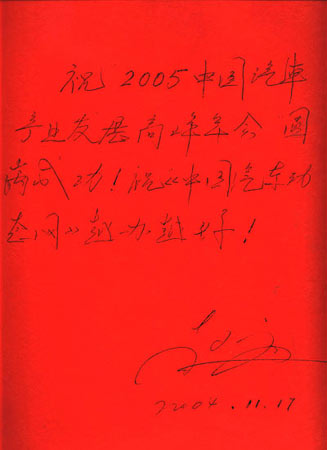 祝2005中国汽車
产业发展高峰年会 圆
满成功！祝《中国汽车动
态网》越办越好！
2004.11.17